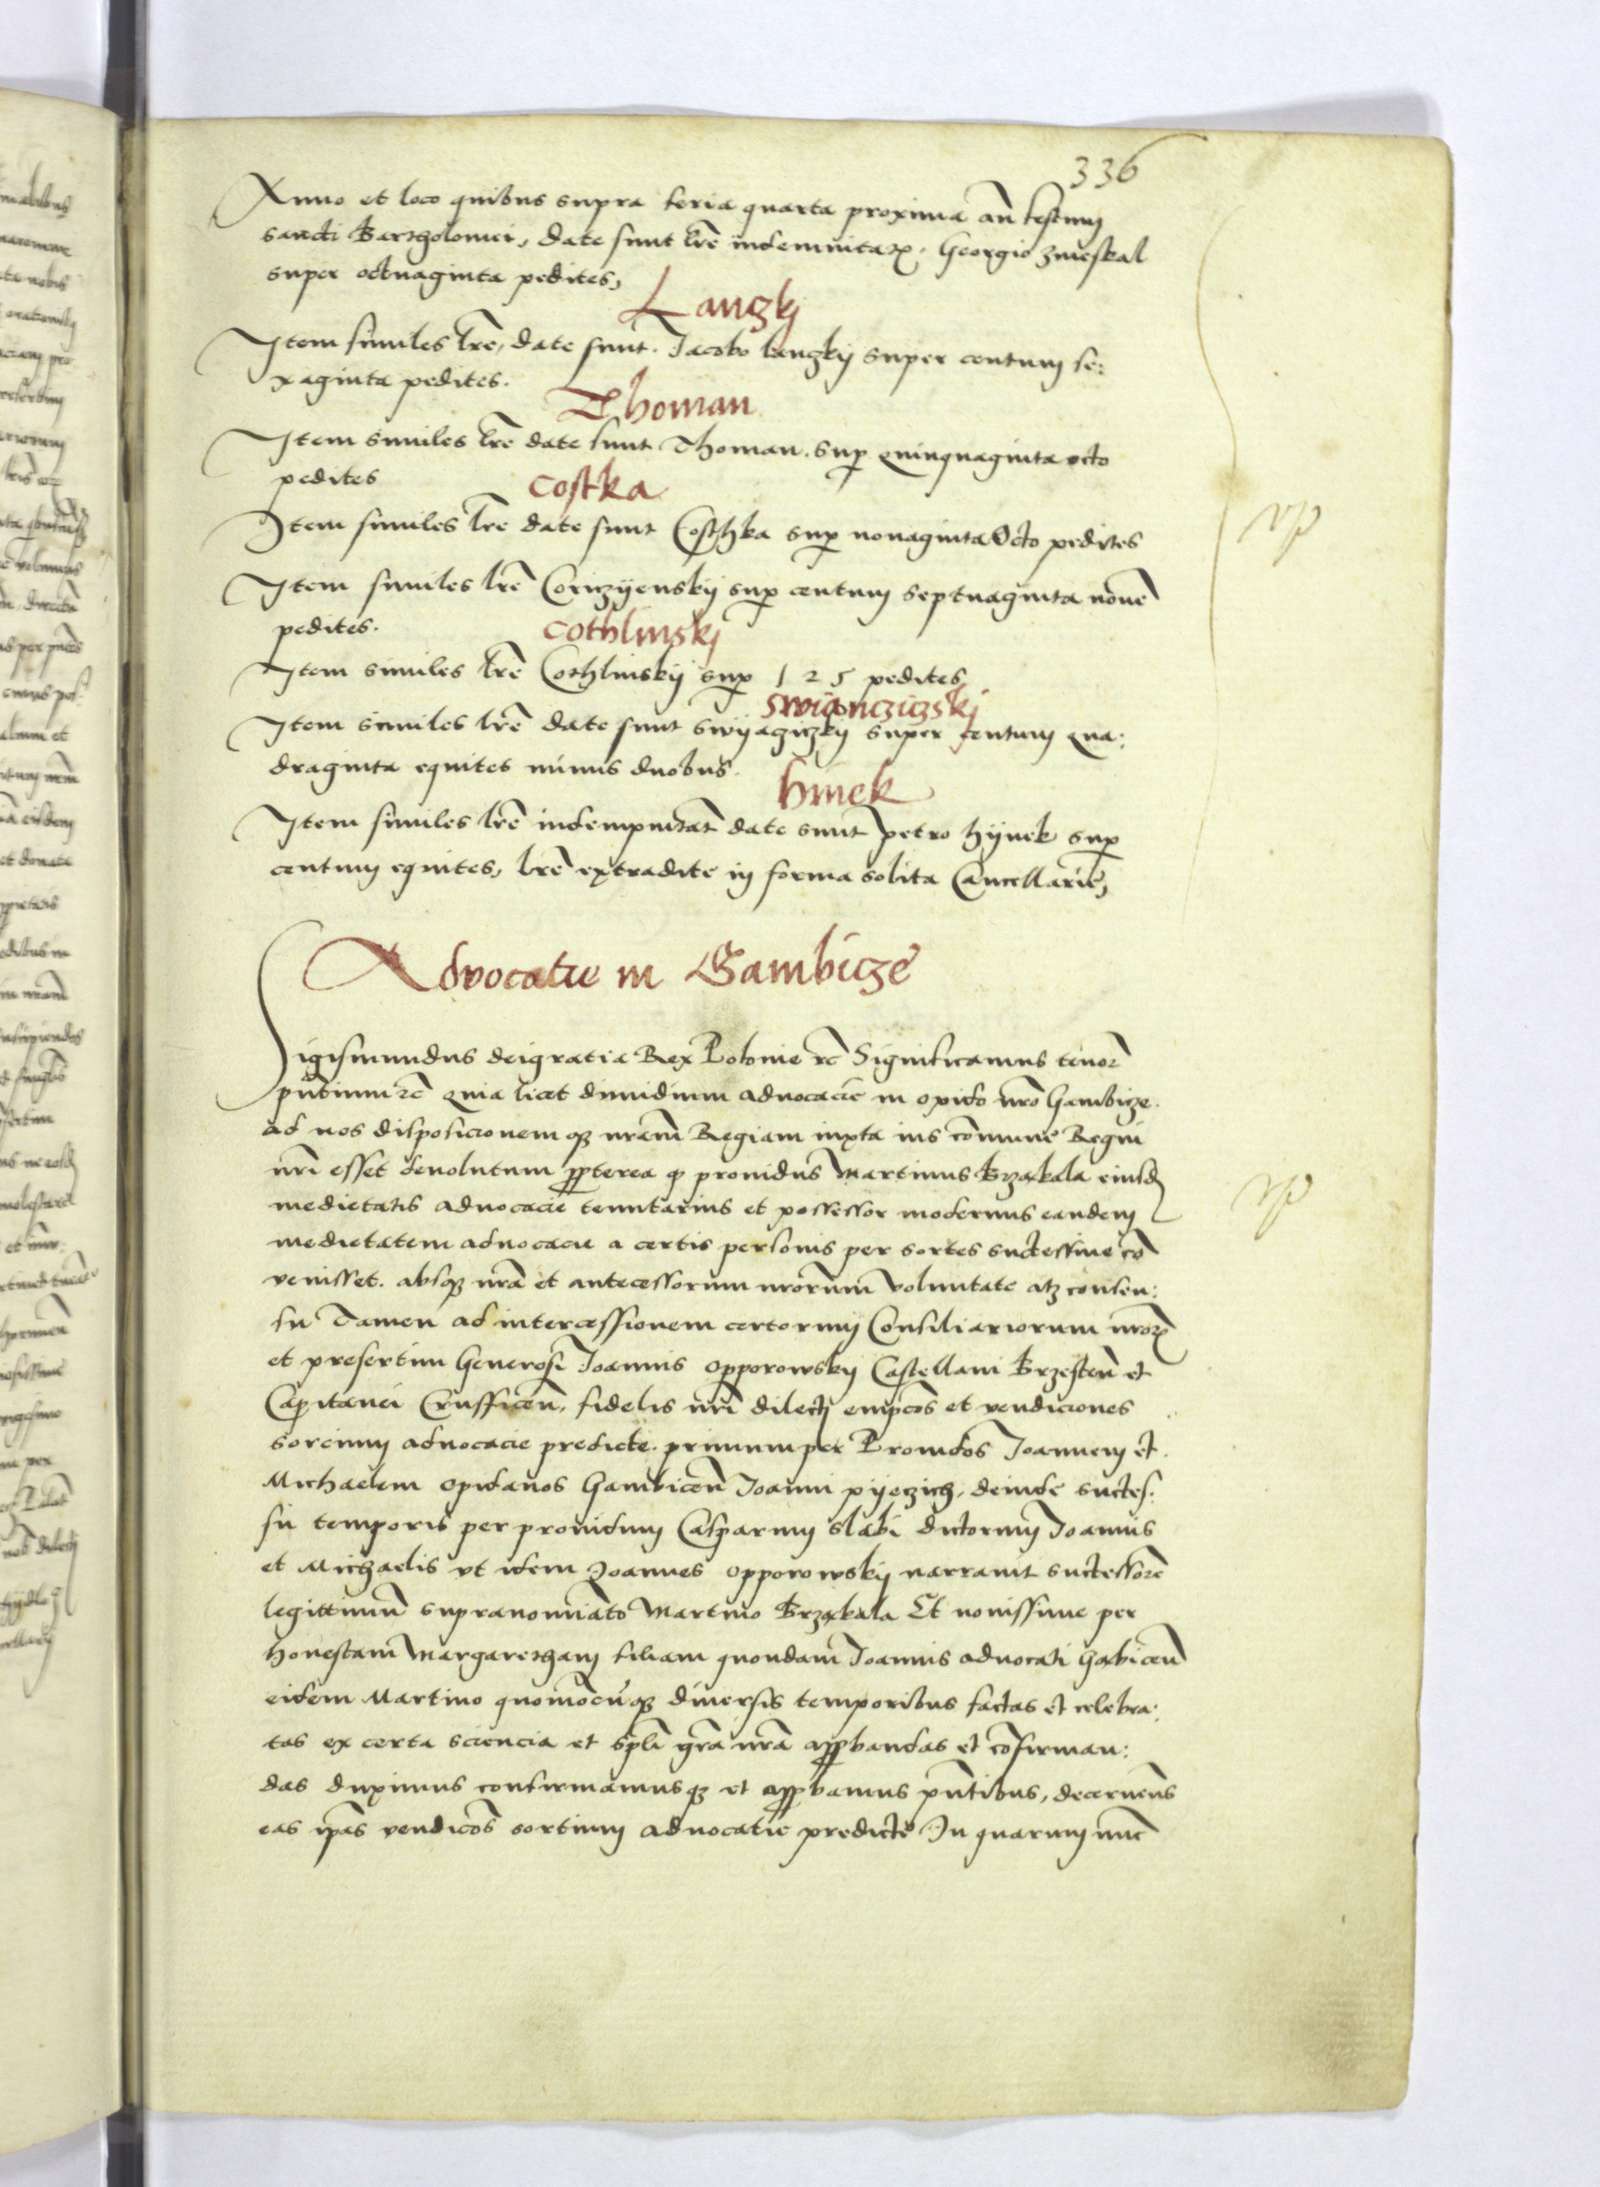 336
Anno et loco quibus supra feria quarta proxima an festum
sancti Bartholomei, date sunt lre indemnitatꝝ. Georgio zmeskal
super octuaginta pedites,
Lanczkj
Item similes lre, date sunt. Jacobo lanczkij super centum se:
xaginta pedites.
Thoman
Item similes lre date sunt Thoman. sup quinquaginta octo
pedites
Costka
Item similes lre date sunt Costhka sup nonaginta Octo pedites
Item similes lre Coriczijenskij sup centum septuaginta nove
pedites.
Cothlinskj
Item similes lre Cothlinskij sup 125 pedites,
Swiancziczskj
Item similes lre date sunt swijaziczkij super centum qua:
draginta equites minus duobus.
hinek
Item similes lre indempnitat date sunt petro hijnek sup
centum equites, lre extradite in forma solita Cancellarie,
Advocatie in Gambicze
Sigismundus deigratia Rex Polonie rc Significamus tenor
pntium rc quia licet dimidium advocacie in opido nro Gambicze.
ad nos disposicionemqȝ nram Regiam iuxta ius comune Regni
nri esset devolutum ꝓpterea ꝙ providus Martinus Brzakala eiusd
medietatis advocacie tenutarius et possessor modernus eandem
medietatem advocacie a certis personis per sortes successive co
venisset. absqȝ nra et antecessorum nrorum voluntate atqȝ consen:
su Tamen ad intercessionem certorum Consiliariorum nroꝝ
et presertim Generosi Joannis Opporowskij Castellani Brzesten et
Capitanei Cruffwicen, fidelis nri dilecti empcos et vendiciones
sorcium advocacie predicte. primum per Providos Joannem et.
Michaelem opidanos Gambicen Joanni pijeczich, deinde succes:
su temporis per providum Casparum slabi dictorum Joannis
et Michaelis ut idem Joannes Opporowskij narravit successore
legittimum supranominato Martino Brzakala Et novissime per
honestam Margaretham filiam quondam Joannis advocati Gabicen
eidem Martino quomocunqȝ diversis temporibus factas et celebra:
tas ex certa sciencia et spli gra nra apꝓbandas et confirman:
das duximus confirmamusqȝ et apꝓbamus pntibus, decernens
eas ipas vendicos sortium advocatie predicte In quarum nunc